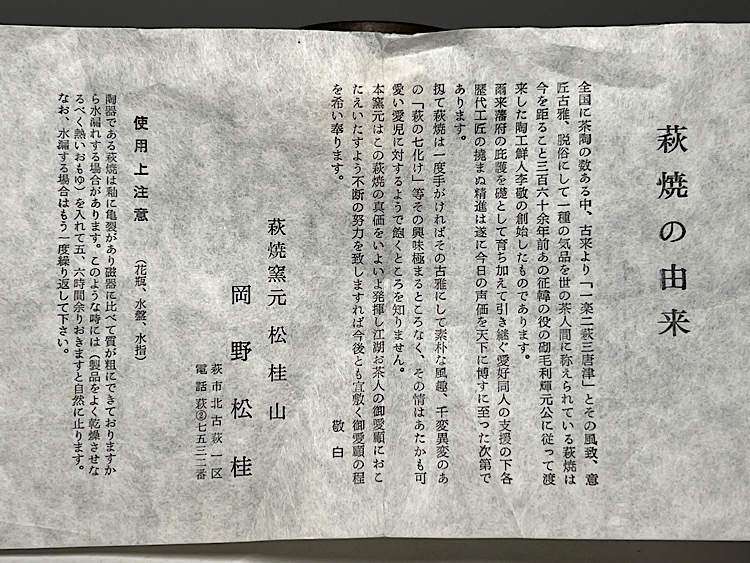 萩焼の由来
全国に茶陶の数ある中、古来より「一楽二萩三唐津」とその風致、意
匠古雅、脱俗にして一種の気品を世の茶人間に称えられている萩焼は
今を距ること三百六十余年前あの征韓の役の砌毛利輝元公に従って渡
来した陶工鮮人李敬の創始したものであります。
爾来藩府の庇護を礎として育ち加えて引き継ぐ愛好同人の支援の下各
歴代工匠の撓まぬ精進は遂に今日の声価を天下に博すに至った次第で
あります。
扨て萩焼は一度手がければその古雅にして素朴な風趣、千変異変のあ
の「萩の七化け」等その興味極まるところなく、その情はあたかも可
愛い愛児に対するようで飽くところを知りません。
本窯元はこの萩焼の真価をいよいよ発揮し江湖お茶人の御愛顧におこ
たえいたすよう不断の努力を致しますれば今後とも宜敷く御愛顧の程
を希い奉ります。
敬白
萩焼窯元松桂山
岡野松桂
萩市北古萩一区
電話萩②七五三二番
使用上注意（花瓶、水盤、水指）
陶器である萩焼は釉に亀裂があり磁器に比べて質が粗にできておりますか
ら水漏れする場合があります。このような時には（製品をよく乾燥させな
るべく熱いおもゆ）を入れて五、六時間余りおきますと自然に止ります。
なお、水漏する場合はもう一度繰り返して下さい。